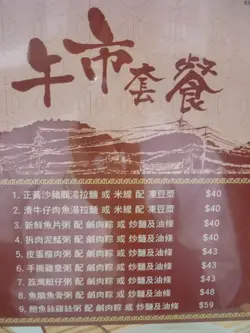 午市套餐
1. 正黃沙豬膶湯拉麵 或 米線 配 凍豆漿 $40
2. 滑牛仔肉魚湯拉麵 或 米線 配 凍豆漿 $40
3. 新鮮魚片粥 配 鹹肉粽 或 炒麵及油條 $40
4. 拆肉泥鯭粥 配 鹹肉粽 或 炒麵及油條 $40
5. 皮蛋瘦肉粥 配 鹹肉粽 或 炒麵及油條 $43
6. 手撕雞皇粥 配 鹹肉粽 或 炒麵及油條 $43
7. 荔灣艇仔粥 配 鹹肉粽 或 炒麵及油條 $43
8. 魚腩魚骨粥 配 鹹肉粽 或 炒麵及油條 $48
9. 鮑魚絲雞絲粥 配 鹹肉粽 或 炒麵及油條 $59